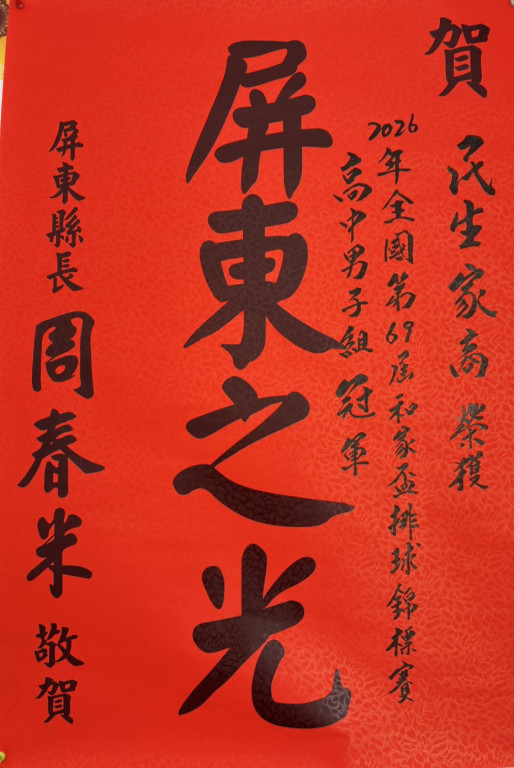 賀
民生家商 榮獲
2026年全國第69屆和家盃排球錦標賽
高中男子組 冠軍
屏東之光
屏東縣長 周春米 敬賀